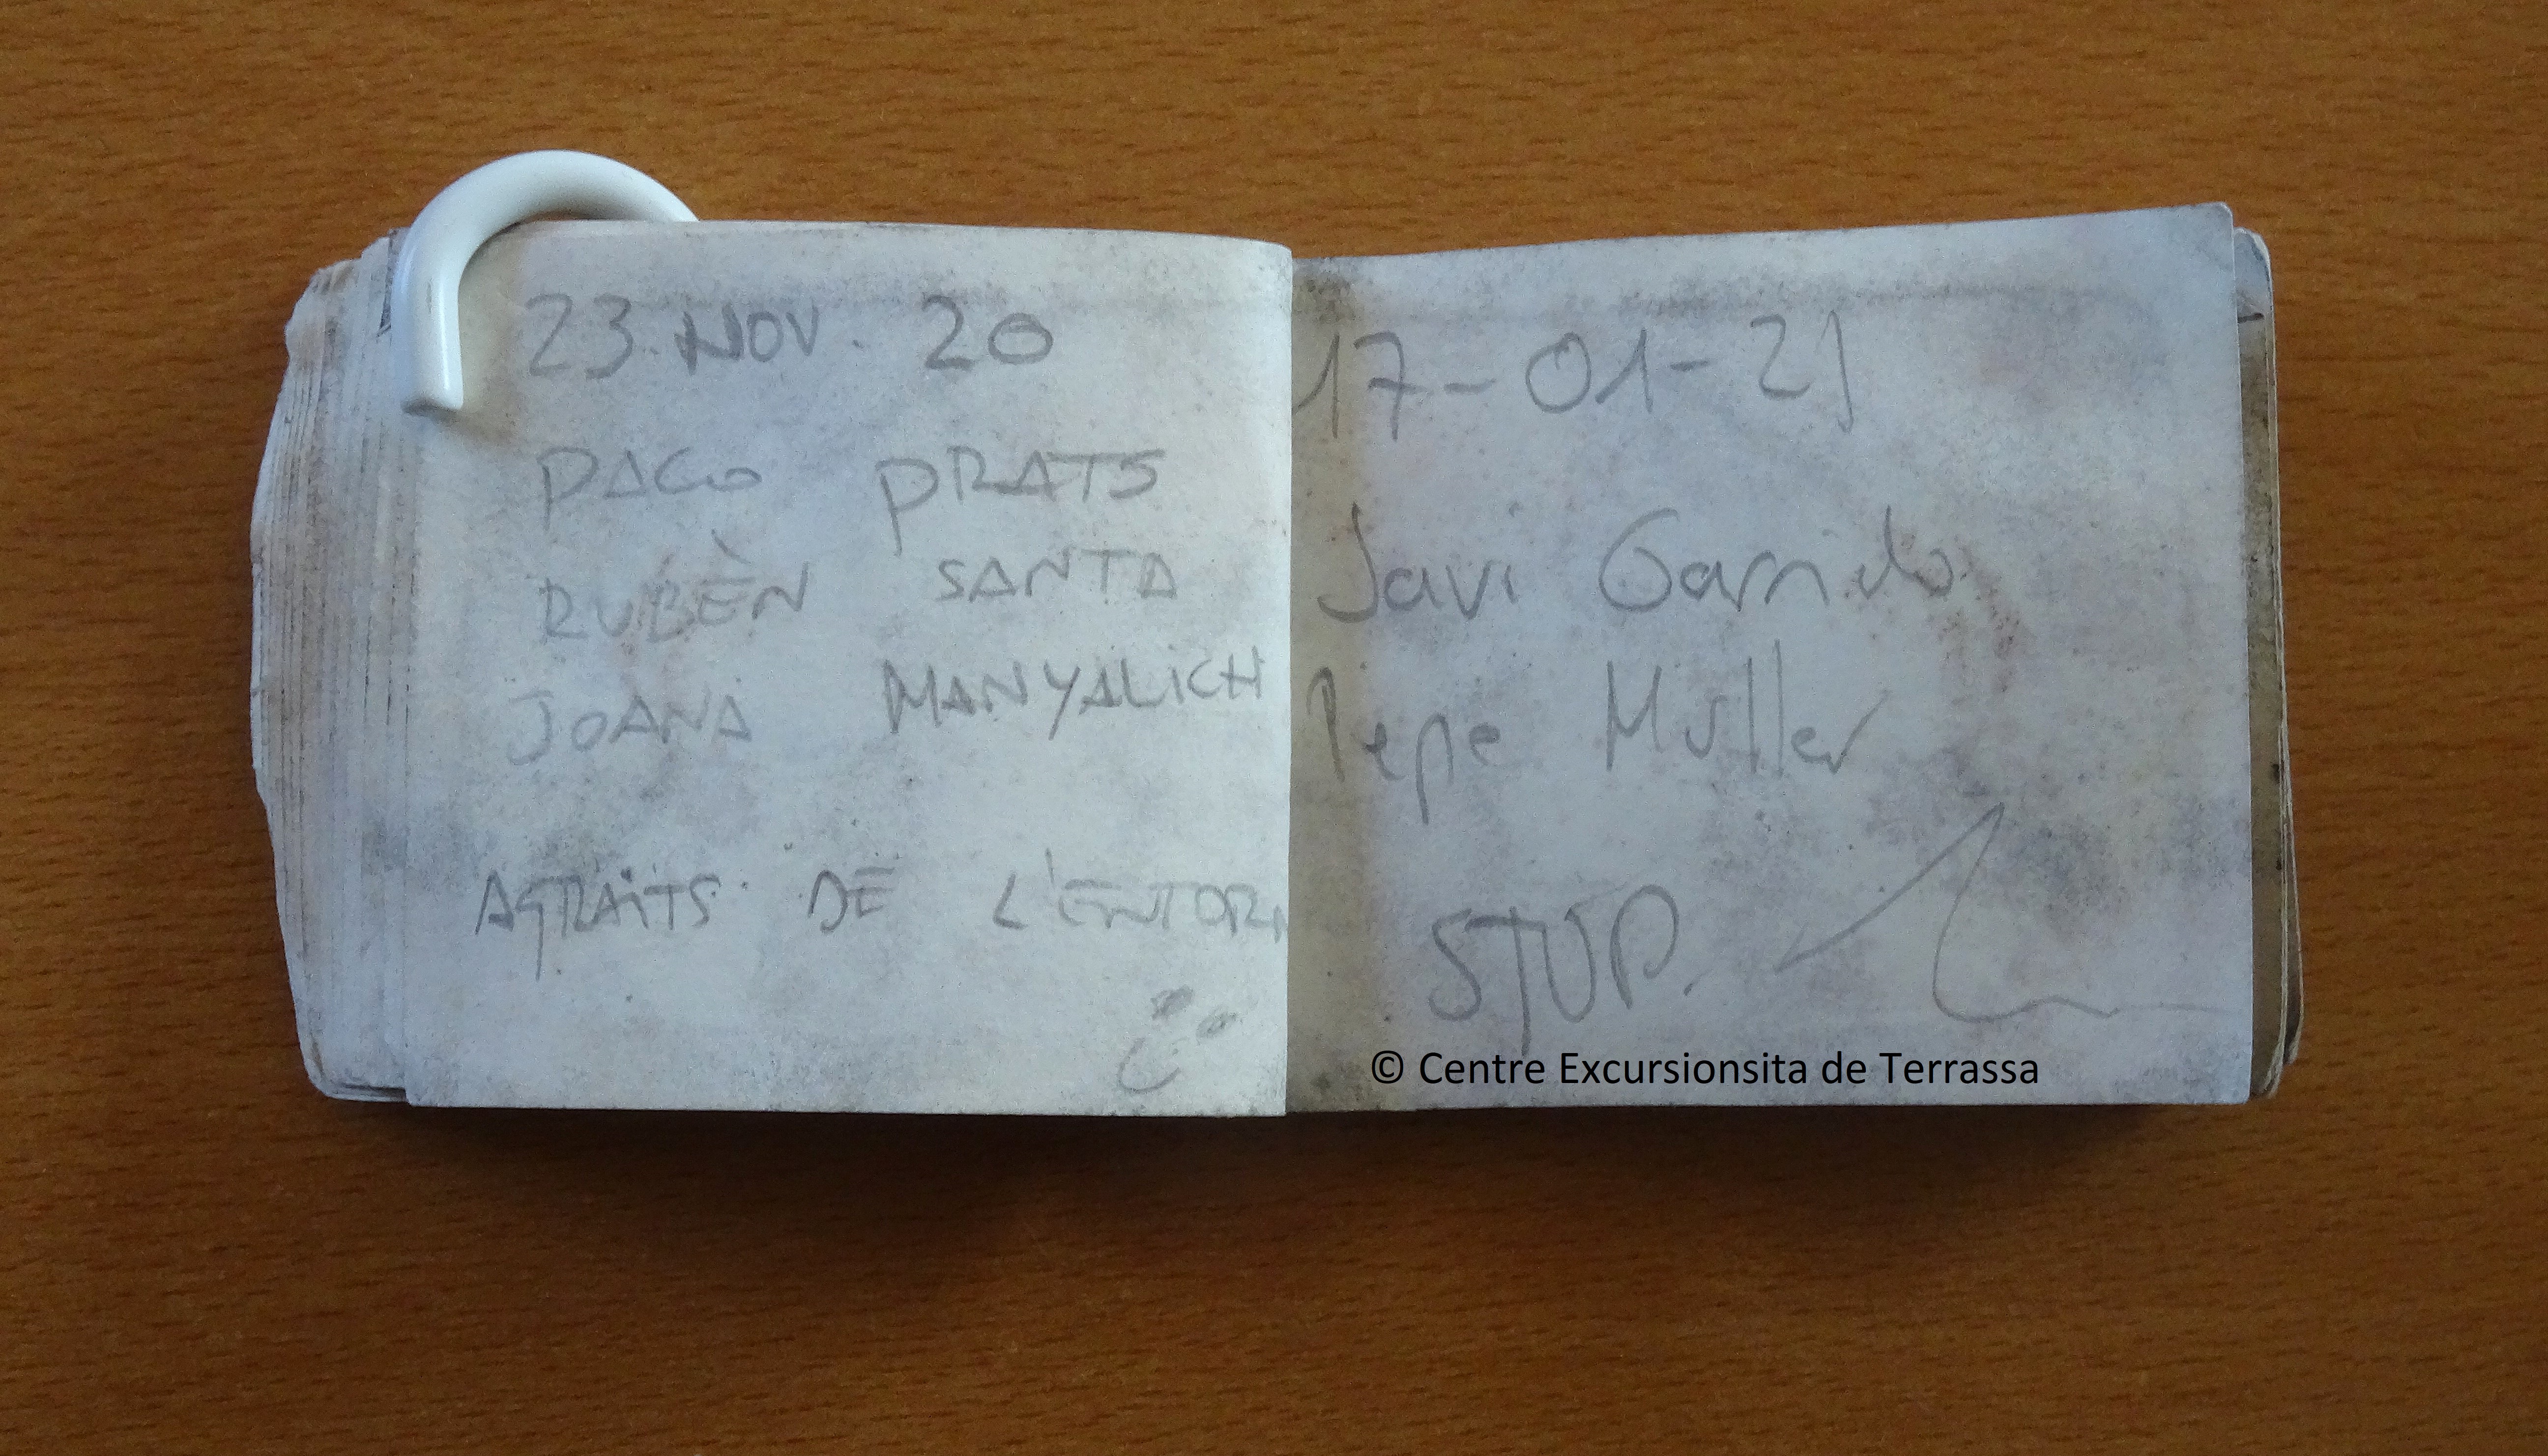 23 NOV. 20
PACO PRATS
RUBÈN SANTA
JOANA MANYALICH
AGRAÏTS DE L'ENTORN
17-01-21
Javi Garrido
Pepe Muller
STUP.
© Centre Excursionsita de Terrassa